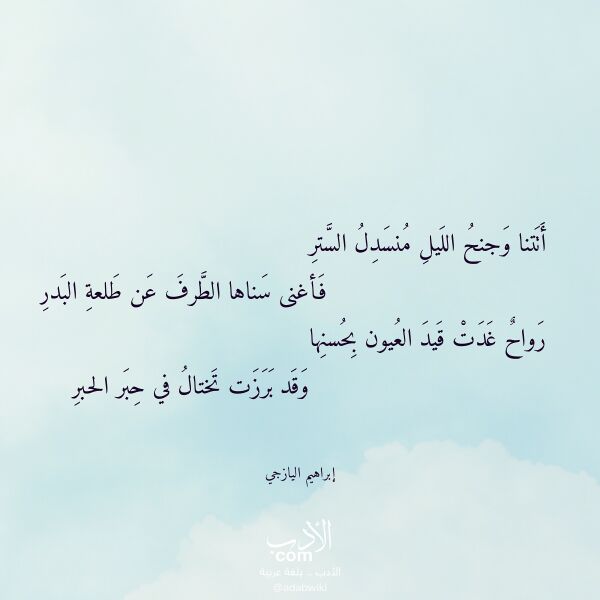 أَتَتنا وَجنحُ اللَيلِ مُنسَدِلُ السَّترِ
فَأغنى سَناها الطَّرفَ عَن طَلعةِ البَدرِ
رَواحٌ غَدَتْ قَيدَ العُيون بِحُسنِها
وَقَد بَرَزَت تَختالُ في حِبَر الحبرِ
إبراهيم اليازجي
الأدب
.com
الأدب .. بلغة عربية
@adabwiki